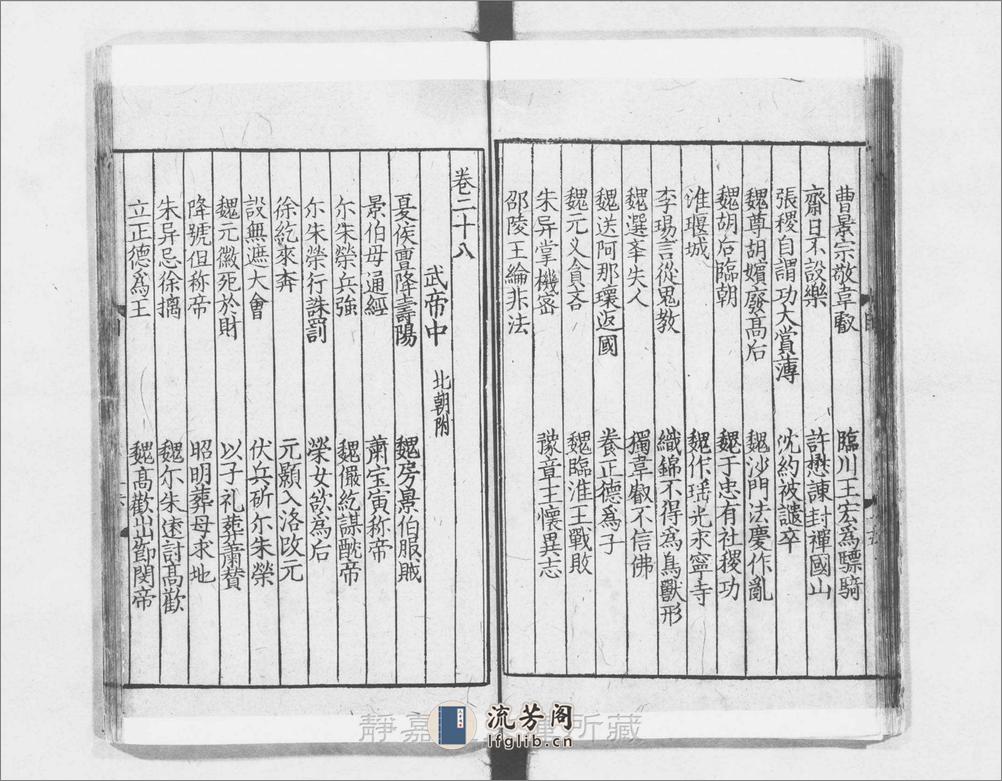 曹景宗敬韋叡　臨川王宏爲驃騎
齋日不設樂　許懋諫封禪國山
張稷自謂功大賞薄　沈約被譴卒
魏尊胡嬪廢高后　魏沙門法慶作亂
魏胡后臨朝　魏于忠有社稷功
淮堰城　魏作瑶光永寧寺
李瑒言從鬼教　織錦不得爲鳥獸形
魏選舉失人　獨韋叡不信佛
魏送阿那瓌返國　養正德爲子
魏元义貪吝　魏臨淮王戰敗
朱异掌機宻　豫章王懷異志
邵陵王綸非法
卷二十八
武帝中　北朝附
夏侯亶降壽陽　魏房景伯服賊
景伯母通經　蕭宝寅称帝
尔朱榮兵強　魏儼紇謀酖帝
尔朱榮行誅罰　榮女欲爲后
徐紇來奔　元顥入洛改元
設無遮大會　伏兵斫尔朱榮
魏元徽死於財　以子礼葬蕭賛
降號但称帝　昭明葬母求地
朱异忌徐摛　魏尓朱逺討高歡
立正德爲王　魏高歡出節閔帝
靜嘉 所藏
流芳阁
lfglib.cn